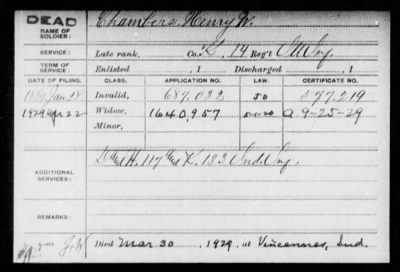 DEAD
NAME OF SOLDIER:
Chambers, Henry W.
SERVICE:
Late rank, Co. 14 Reg't Inf.
TERM OF SERVICE:
Enlisted 1 Discharged 1
DATE OF FILING. CLASS. APPLICATION NO. LAW. CERTIFICATE NO.
Jan Invalid, 50 577.219
1929 22 Widow, 1640957 5-1-20 9-25-29
Minor,
ADDITIONAL SERVICES:
H. 117 K. 133 Ind. Inf.
REMARKS:
Died Mar 30, 1929, at Vincennes, Ind.